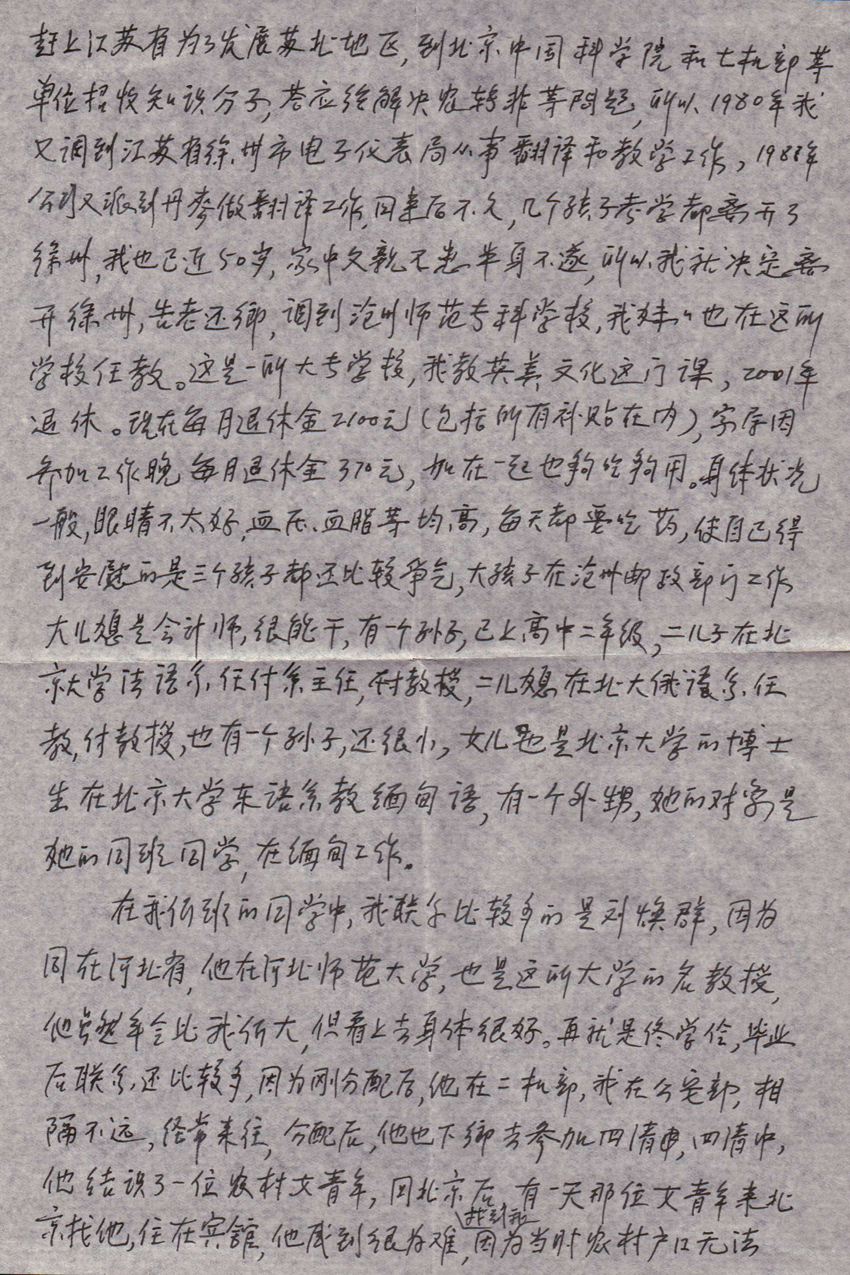 赶上江苏省为了发展苏北地区,到北京中国科学院和七机部等
单位招收知识分子,答应给解决农转非等问题,所以,1980年我
又调到江苏省徐州市电子仪表局从事翻译和教学工作,1988年
公司又派到丹麦做翻译工作,回来后不久,几个孩子考学都离开了
徐州,我也已近50岁,家中父亲又患半身不遂,所以我就决定离
开徐州,告老还乡,调到沧州师范专科学校,我妹妹也在这所
学校任教。这是一所大专学校,我教英美文化这门课,2001年
退休。现在每月退休金2100元(包括所有补贴在内),家属因
参加工作晚每月退休金370元,加在一起也够吃够用。身体状况
一般,眼睛不太好,血压、血脂等均高,每天都要吃药,使自己得
到安慰的是三个孩子都还比较争气,大孩子在沧州邮政部门工作
大儿媳是会计师,很能干,有一个孙子,已上高中二年级,二儿子在北
京大学法语系任付系主任,付教授,二儿媳在北大俄语系任
教,付教授,也有一个孙子,还很小,女儿也是北京大学的博士
生在北京大学东语系教缅甸语,有一个外甥,她的对象是
她的同班同学,在缅甸工作。
在我们班的同学中,我联系比较多的是刘焕群,因为
同在河北省,他在河北师范大学,也是这所大学的名教授,
他虽然年令比我们大,但看上去身体很好。再就是佟学俭,毕业
后联系还比较多,因为刚分配后,他在二机部,我在公安部,相
隔不远,经常来往,分配后,他也下乡去参加四清,四清中,
他结识了一位农村女青年,回北京后,有一天那位女青年来北
京找他,住在宾馆,他感到很为难,因为当时农村户口无法